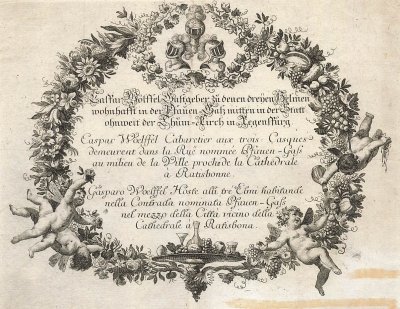 Caspar Wölffel Gastgeber zu denen dreyen Helmen
wohnhafft in der Pfauen-Gaß mitten in der Statt
ohnweit der Thum-Kirch in Regensburg
Caspar Woelffel Cabaretier aux trois Casques
demeurent dans la Rue nommée Pfauen-Gaß
au milieu de la Ville proche de la Cathédrale
à Ratisbonne.
Gasparo Woelffel Hoste alli tre Elmi habitande
nella Contrada nominata Pfauen-Gaß
nel mezzo della Citta vicino della
Cathedrale à Ratisbona.